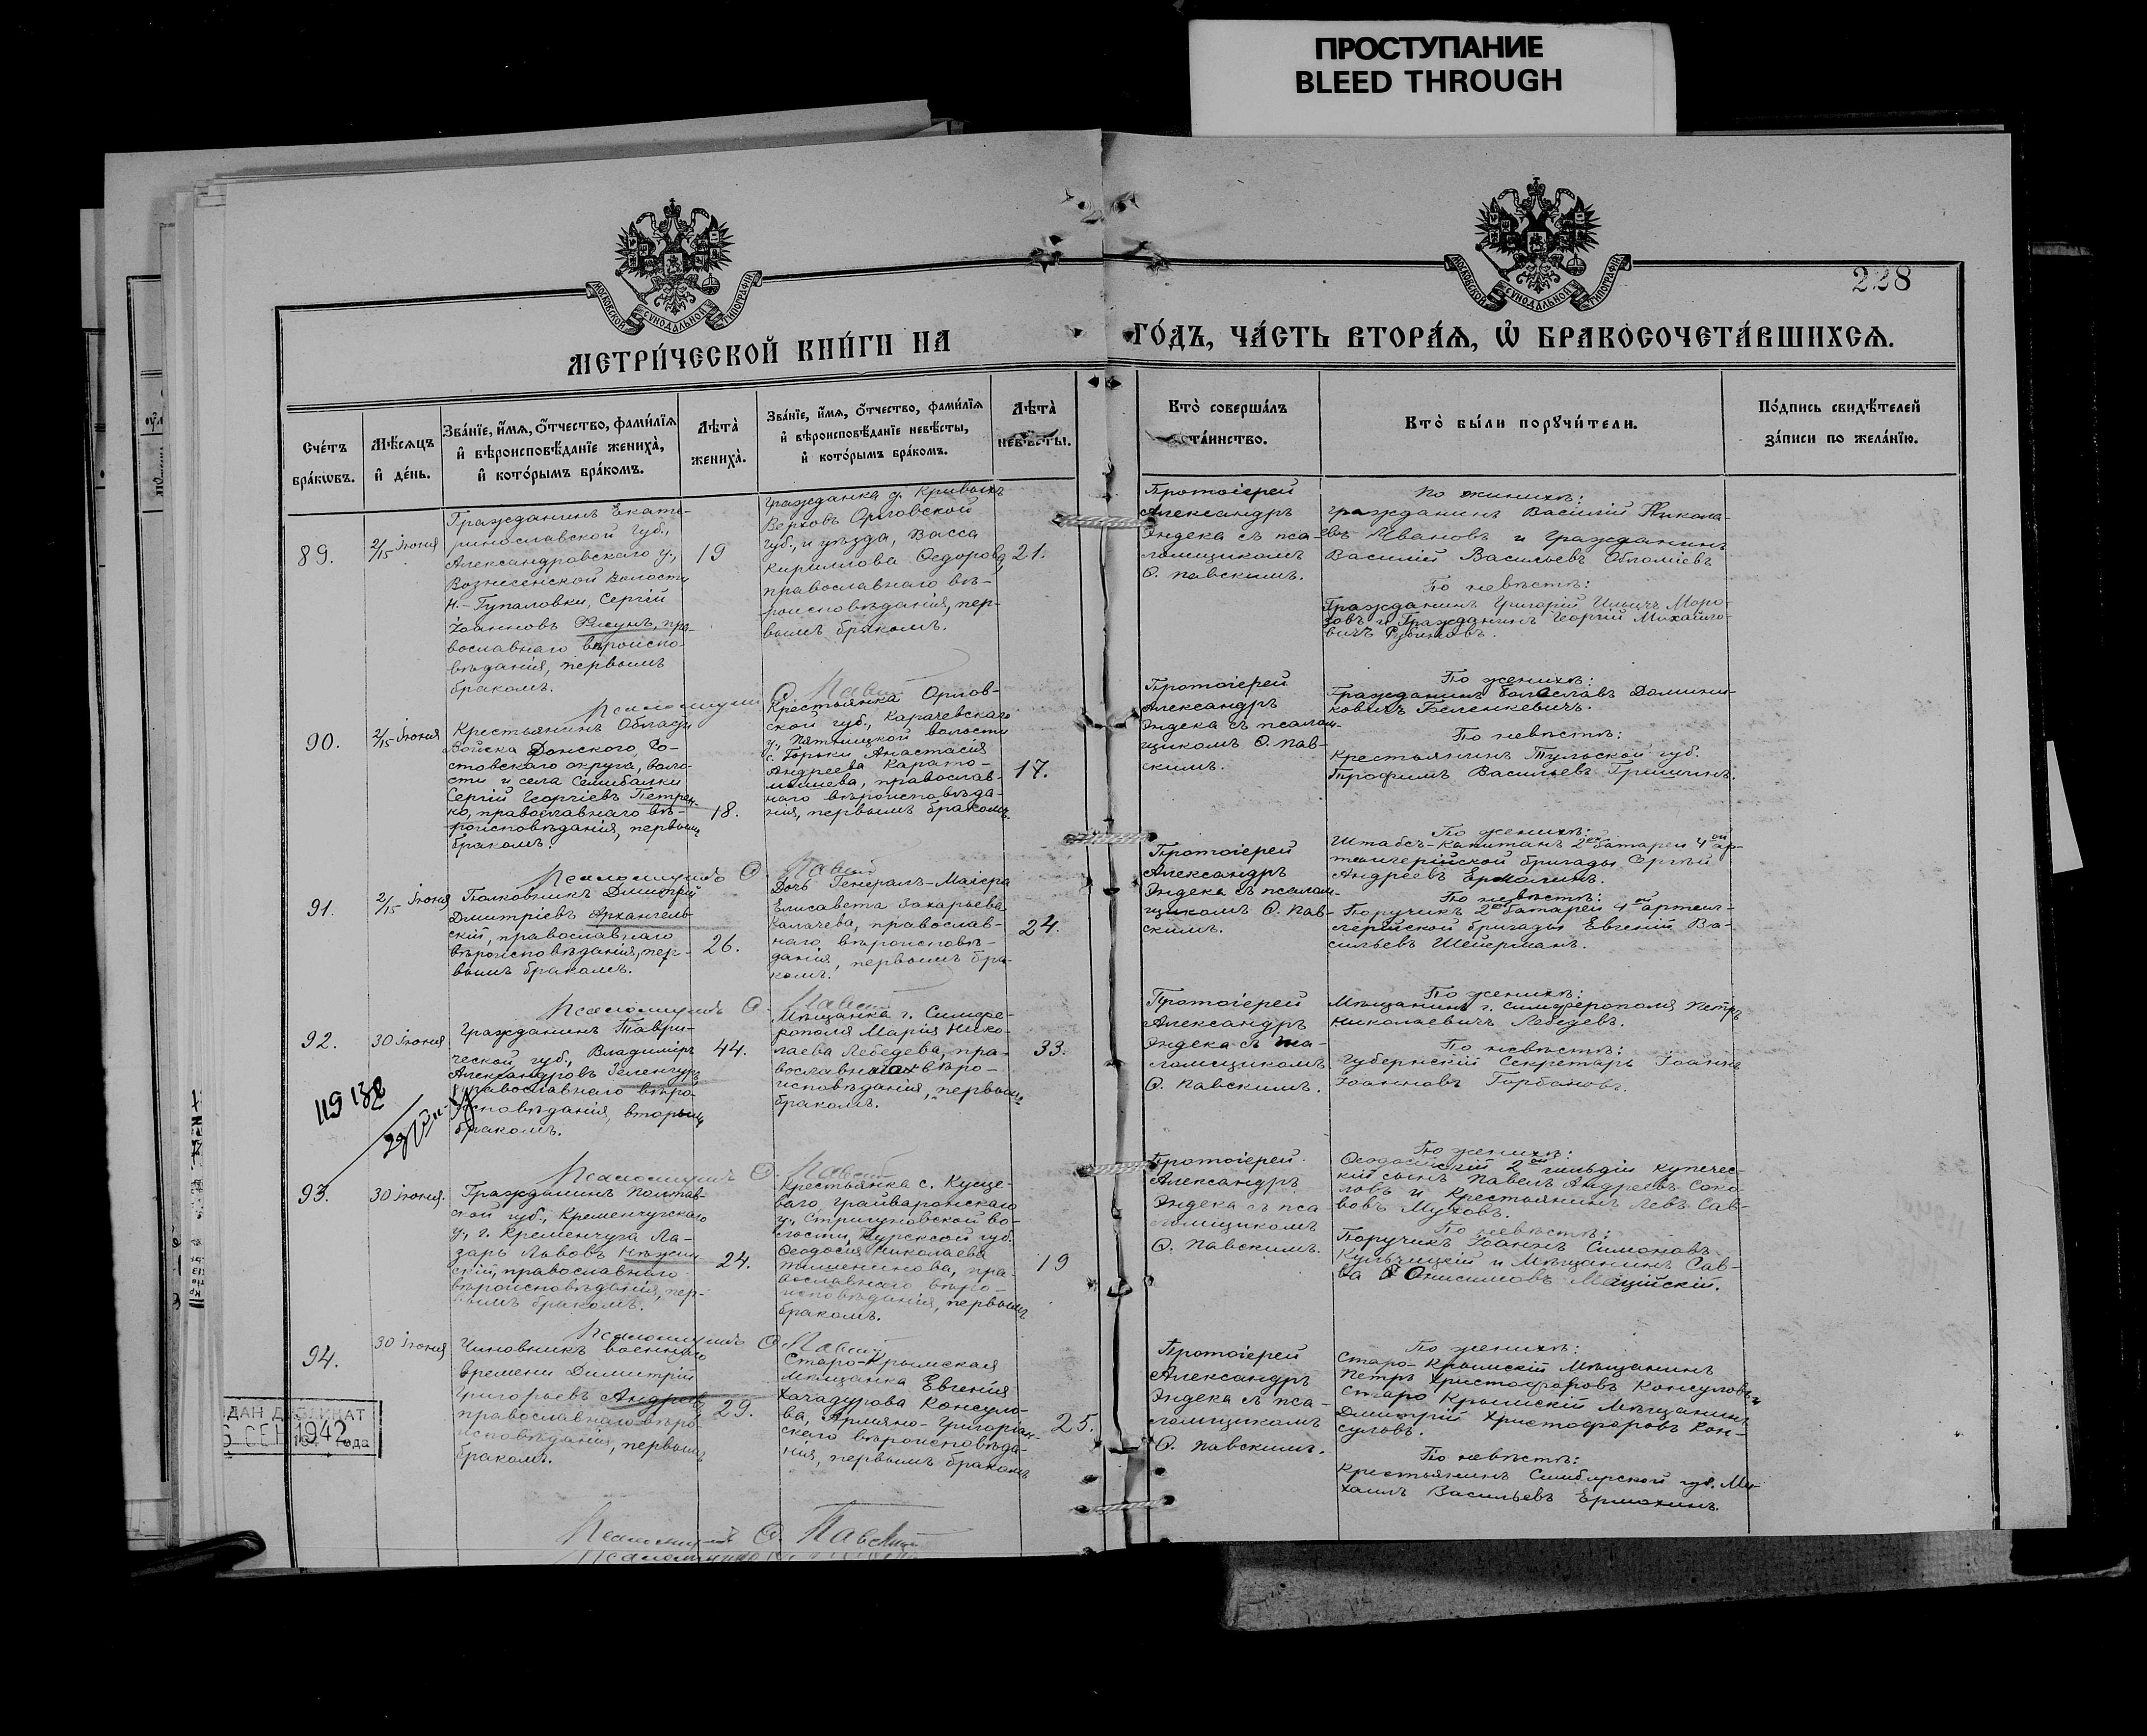 ПРОСТУПАНИЕ
BLEED THROUGH
МОСКОВСКОЙ СУНОДАЛЬНОЙ ТИПОГРАФІИ
МОСКОВСКОЙ СУНОДАЛЬНОЙ ТИПОГРАФІИ
228
МЕТРИ́ЧЕСКОЙ КНИ́ГИ НА
ГО́ДЪ, ЧА́СТЬ ВТОРА́Ѧ, Ѡ҆ БРАКОСОЧЕТА́ВШИХСѦ.
Сче́тъ
бра́кѡвъ.
Мѣ́сѧцъ
и҆ де́нь.
Зва́нїе, и҆́мѧ, ѻ҆́тчество, фами́лїѧ
и҆ вѣроисповѣ́данїе жениха̀,
и҆ кото́рымъ бра́комъ.
Лѣта̀
жениха̀.
Зва́нїе, и҆́мѧ, ѻ҆́тчество, фами́лїѧ
и҆ вѣроисповѣ́данїе невѣ́сты,
и҆ кото́рымъ бра́комъ.
Лѣта̀
невѣ́сты.
Кто̀ соверша́лъ
та́инство.
Кто̀ бы́ли порꙋчи́тели.
По́дпись свидѣ́телей
за́писи по жела́нїю.
89.
2/15 Іюня
Гражданинъ Екате-
ринославской Губ.,
Александровскаго у.,
Вознесенской волости
Н.-Гупаловки, Сергій
Іоанновъ
пра-
вославнаго вѣроиспо-
вѣданія, первымъ
бракомъ.
19
Гражданка д. Кривыхъ
Верховъ Орловской
губ., и уѣзда, Васса
Кириллова Ѳедорова,
православнаго вѣ-
роисповѣданія, пер-
вымъ бракомъ.
21.
Протоіерей
Александръ
Эндека съ пса-
ломщикомъ
Ѳ. Павскимъ.
По женихѣ:
Гражданинъ Василій Никола-
евъ Ивановъ и Гражданинъ
Василій Васильевъ
По невѣстѣ:
Гражданинъ Григорій Ильичъ Моро-
зовъ и Гражданинъ Георгій Михайло-
вичъ
Псаломщикъ Ѳ. Павскій
90.
2/15 Іюня
Крестьянинъ Области
Войска Донского, Ро-
стовскаго округа, воло-
сти и села Семибалки
Сергій Георгіевъ Петрен-
ко, православнаго вѣ-
роисповѣданія, первымъ
бракомъ.
18.
Крестьянка Орлов-
ской губ., Карачевскаго
у., Пятницкой волости
с. Горьки Анастасія
Андреева
православ-
наго вѣроисповѣда-
нія, первымъ бракомъ.
17.
Протоіерей
Александръ
Эндека съ псалом-
щикомъ Ѳ. Пав-
скимъ.
По женихѣ:
Гражданинъ Болеславъ Домини-
ковичъ Беленкевичъ.
По невѣстѣ:
Крестьянинъ Тульской губ.
Трофимъ Васильевъ Гришинъ.
Псаломщикъ Ѳ. Павскій
91.
2/15 Іюня
Полковникъ Дмитрій
Дмитріевъ Архангель-
скій, православнаго
вѣроисповѣданія, пер-
вымъ бракомъ.
26.
Дочь Генералъ-Маіора
Елисавета Захарьева
Калачева, православ-
наго вѣроисповѣ-
данія, первымъ бра-
комъ.
24.
Протоіерей
Александръ
Эндека съ псалом-
щикомъ Ѳ. Пав-
скимъ.
По женихѣ:
Штабсъ-Капитанъ 2ой батареи 4ой ар-
тиллерійской бригады Сергѣй
Андреевъ Ермолинъ.
По невѣстѣ:
Поручикъ 2ой батареи 4ой артил-
лерійской бригады Евгеній Ва-
сильевъ Шейерманъ.
Псаломщикъ Ѳ. Павскій
92.
30 Іюня
Гражданинъ Таври-
ческой губ., Владиміръ
Александровъ Зеленчукъ
православнаго вѣро-
исповѣданія, вторымъ
бракомъ.
44.
Мѣщанка г. Симфе-
рополя Марія Нико-
лаева Лебедева, пра-
вославнаго вѣро-
исповѣданія, первымъ
бракомъ.
33.
Протоіерей
Александръ
Эндека съ пса-
ломщикомъ
Ѳ. Павскимъ.
По женихѣ:
Мѣщанинъ г. Симферополя Петръ
Николаевичъ Лебедевъ.
По невѣстѣ:
Губернскій Секретарь Іоаннъ
Іоанновъ Горбановъ.
Псаломщикъ Ѳ. Павскій
93.
30 Іюня.
Гражданинъ Полтав-
ской губ., Кременчугскаго
у., г. Кременчуга Ла-
зарь Львовъ Нѣжин-
скій, православнаго
вѣроисповѣданія, пер-
вымъ бракомъ.
24.
Крестьянка с. Кусце-
ваго Грайворонскаго
у., Стригуновской во-
лости, Курской губ.
Ѳеодосія Николаева
пра-
вославнаго вѣро-
исповѣданія, первымъ
бракомъ.
19
Протоіерей
Александръ
Эндека съ пса-
ломщикомъ
Ѳ. Павскимъ.
По женихѣ:
Ѳеодосійскій 2ой гильдіи купечес-
кій сынъ Павелъ Андреевъ Соко-
ловъ и Крестьянинъ Левъ Сав-
вовъ Муховъ.
По невѣстѣ:
Поручикъ Іоаннъ Симоновъ
Кульчицкій и Мѣщанинъ Сав-
ва Онисимовъ
Псаломщикъ Ѳ. Павскій
94.
30 Іюня
Чиновникъ военнаго
времени Димитрій
Григорьевъ Андреевъ
православнаго вѣро-
исповѣданія, первымъ
бракомъ.
29.
Старо-Крымская
Мѣщанка Евгенія
Хачадурова Консуло-
ва, Армяно-Григоріан-
скаго вѣроисповѣда-
нія, первымъ бракомъ
25.
Протоіерей
Александръ
Эндека съ пса-
ломщикомъ
Ѳ. Павскимъ.
По женихѣ:
Старо-Крымскій Мѣщанинъ
Петръ Христофоровъ Консуловъ и
Старо Крымскій Мѣщанинъ
Дмитрій Христофоровъ Кон-
суловъ.
По невѣстѣ:
Крестьянинъ Симбирской губ. Ми-
хаилъ Васильевъ Ермохинъ.
Псаломщикъ Ѳ. Павскій
ДАН ДУБЛИКАТ
СЕН 1942 года